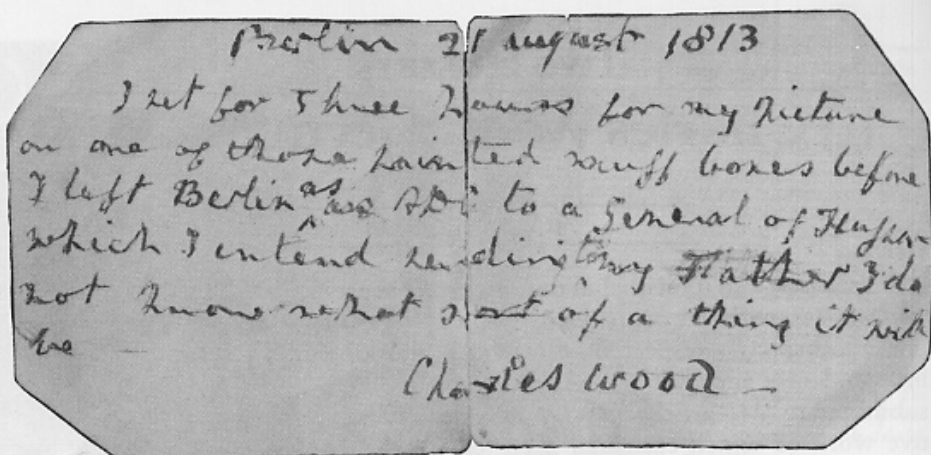 Berlin 21 august 1813
I set for Three hours for my Picture
on one of those painted snuff boxes before
I left Berlin as ADC to a General of Hussars
which I intend sending to my Father I do
not know what sort of a thing it will
be
Charles Wood